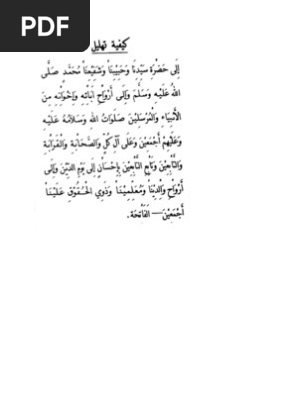 PDF
كيفية تهليل
إِلَى حَضْرَةِ سَيِّدِنَا وَحَبِيْبِنَا وَشَفِيْعِنَا مُحَمَّدٍ صَلَّى
اللهُ عَلَيْهِ وَسَلَّمَ وَإِلَى أَرْوَاحِ آبَائِهِ وَإِخْوَانِهِ مِنَ
الْأَنْبِيَاءِ وَالْمُرْسَلِيْنَ صَلَوَاتُ اللهِ وَسَلَامُهُ عَلَيْهِ
وَعَلَيْهِمْ أَجْمَعِيْنَ وَعَلَى آلِ كُلٍّ وَالصَّحَابَةِ وَالْقَرَابَةِ
وَالتَّابِعِيْنَ وَتَابِعِ التَّابِعِيْنَ بِإِحْسَانٍ إِلَى يَوْمِ الدِّيْنِ وَإِلَى
أَرْوَاحِ وَالِدِيْنَا وَمُعَلِّمِيْنَا وَذَوِي الْحُقُوْقِ عَلَيْنَا
أَجْمَعِيْنَ — الْفَاتِحَة.